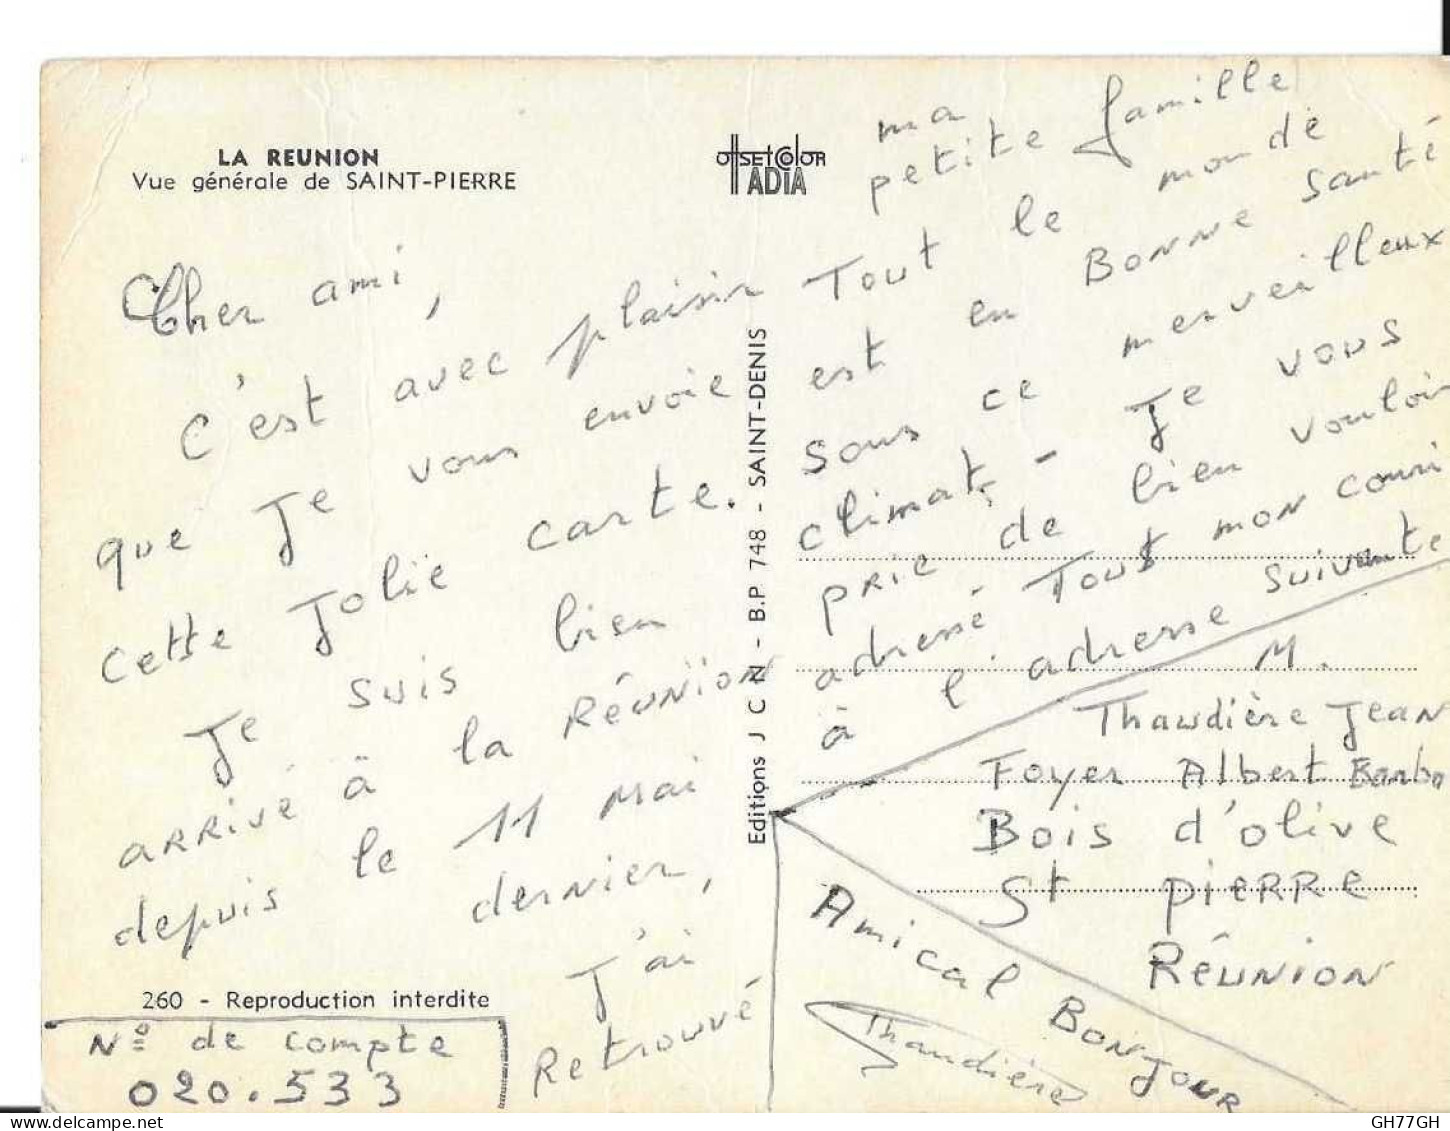 LA REUNION
Vue générale de SAINT-PIERRE
OffSETCOlOR
ADIA
Cher ami,
c'est avec plaisir
que Je vous envoie
cette Jolie carte.
Je suis bien
ARRIVÉ à la RÉUNION
depuis le 11 MAi
dernier,
J'ai
Retrouvé
260 - Reproduction interdite
N° de compte
020.533
Editions J C N - B.P 748 - SAINT-DENIS
ma
petite famille
Tout le monde
est en BONNE santé
sous ce merveilleux
climat - Je vous
PRIE de bien vouloir
adressé Tout mon courri
à l'adresse suivante
M.
Thaudière JEAN
Foyer Albert Barbo
Bois d'olive
St PIERRE
RÉUNION
Amical BONJOUR
Thaudière
GH77GH